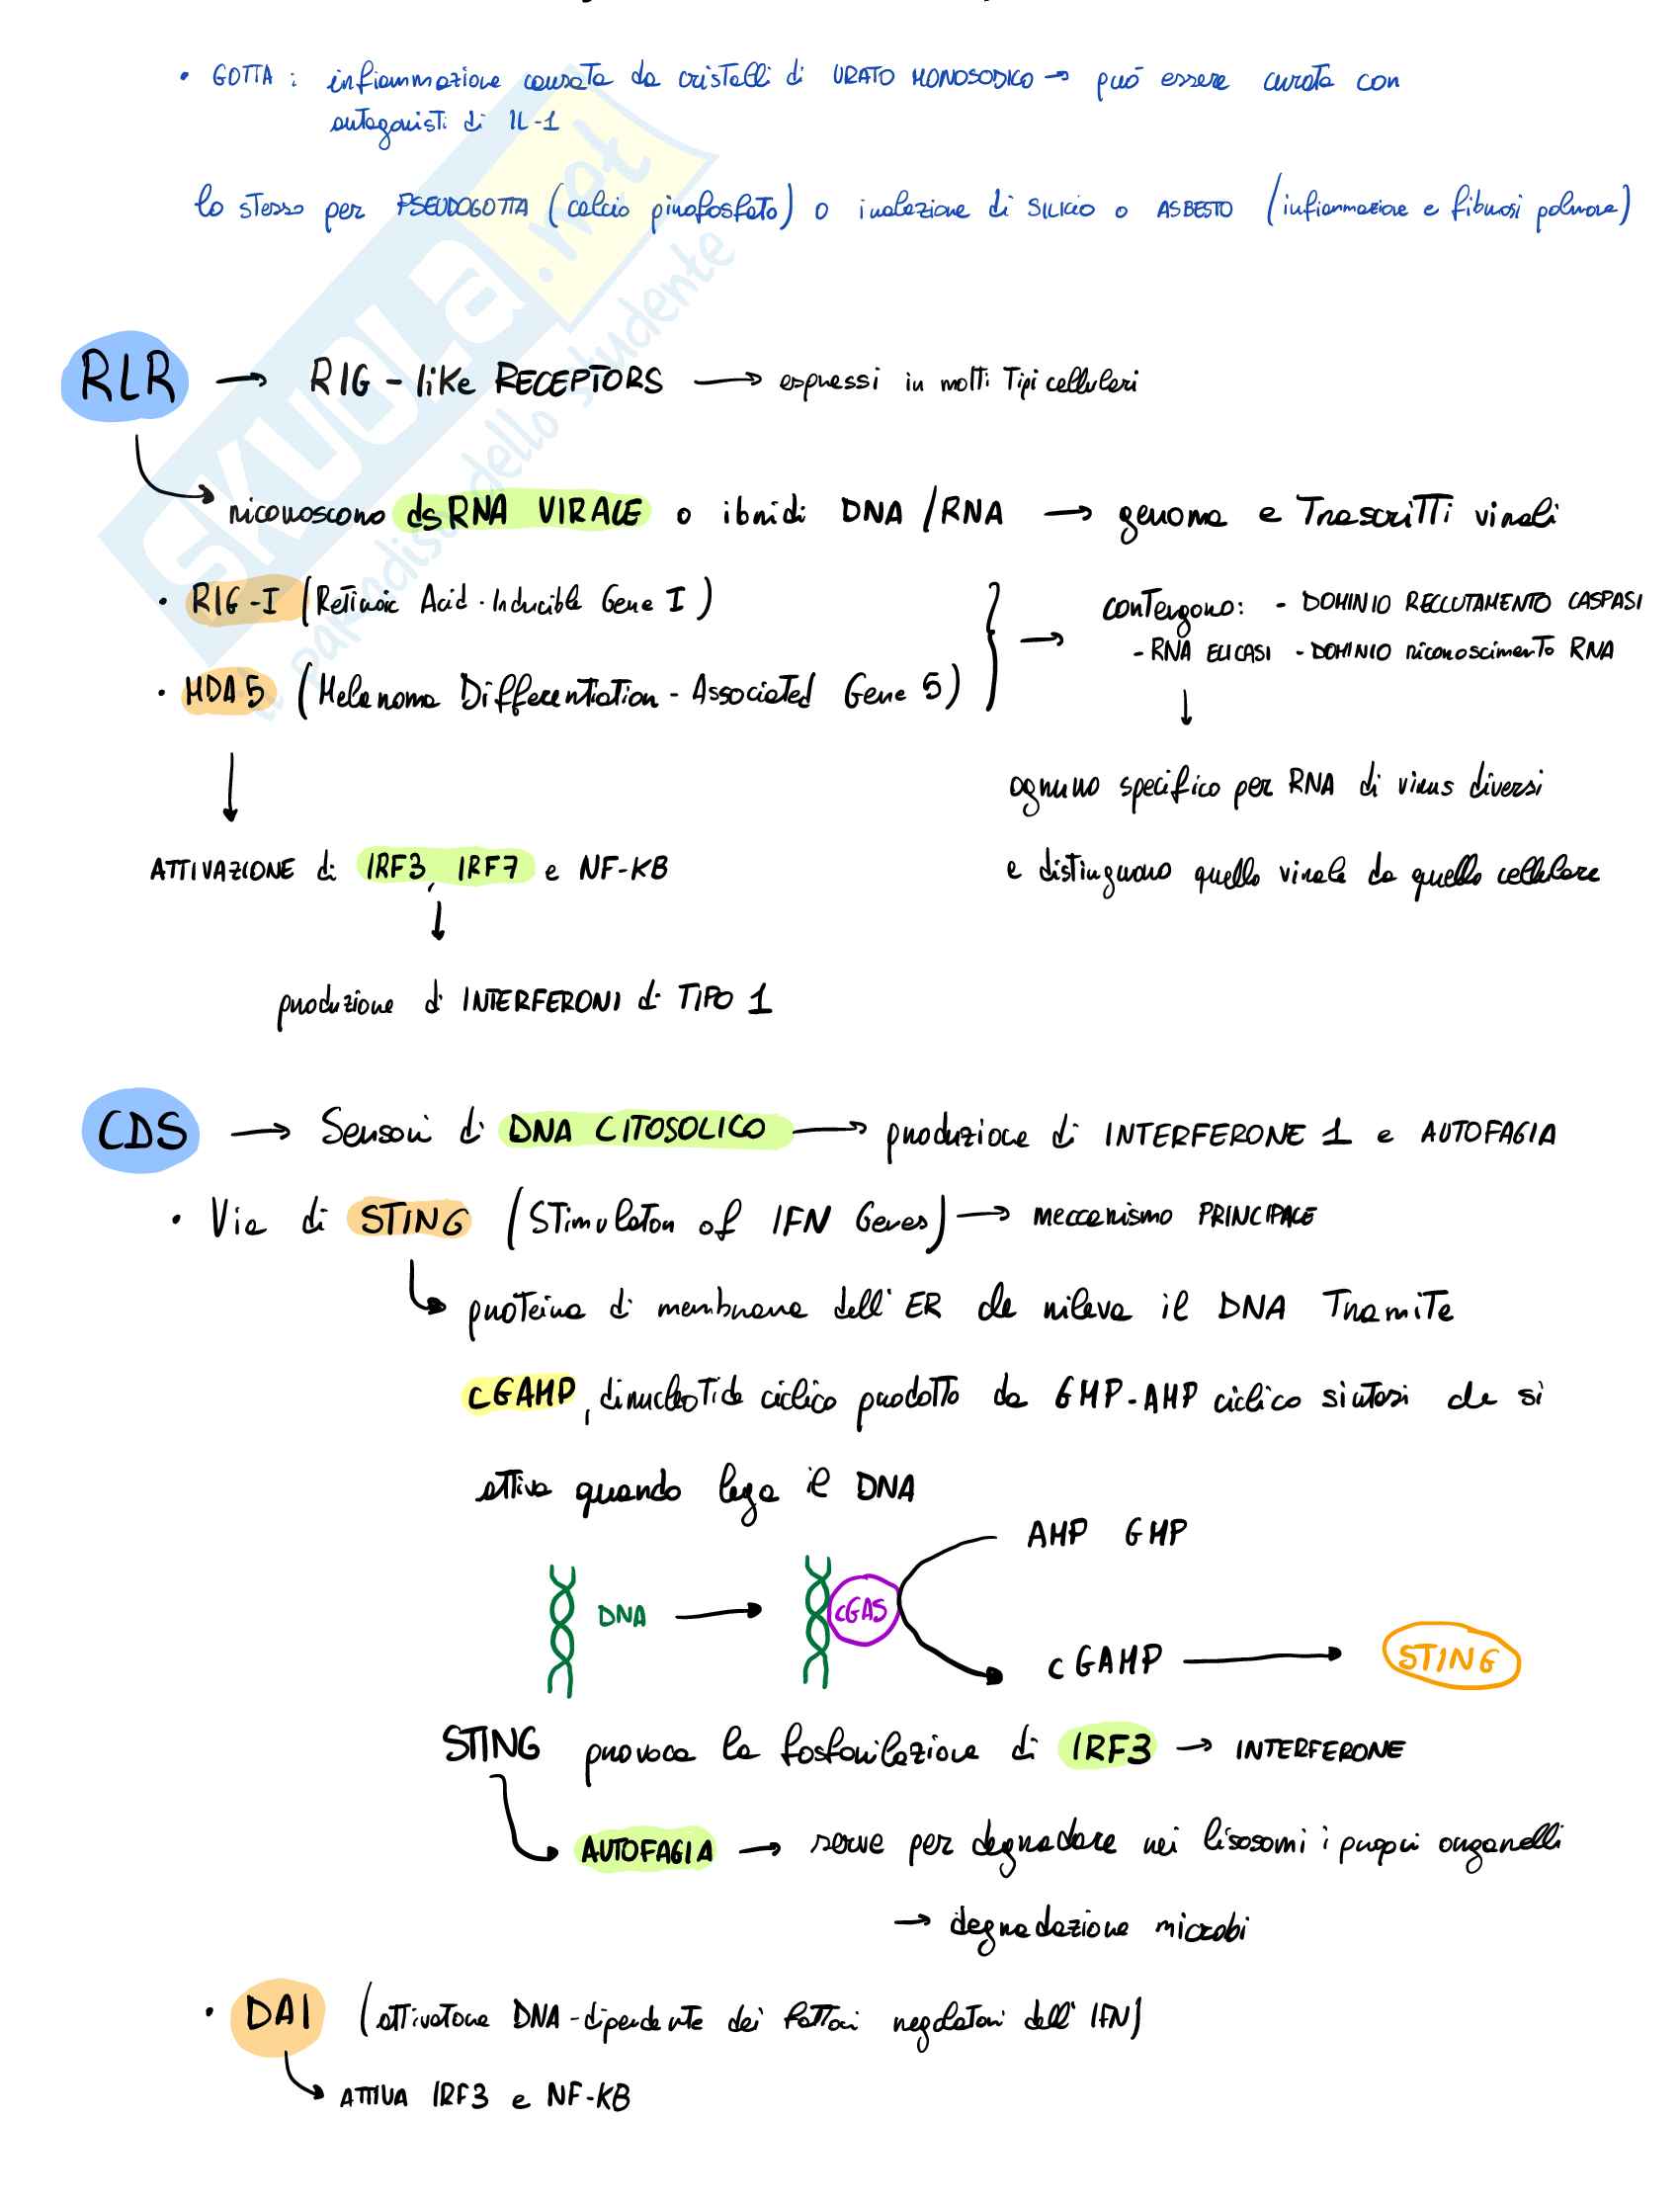 • GOTTA : infiammazione causata da cristalli di URATO MONOSODICO → può essere curata con
antagonisti di IL-1
lo stesso per PSEUDOGOTTA (calcio pirofosfato) o inalazione di SILICIO o ASBESTO (infiammazione e fibrosi polmone)
RLR → RIG-like RECEPTORS → espressi in molti Tipi cellulari
riconoscono dsRNA VIRALE o ibridi DNA/RNA → genoma e Trascritti virali
• RIG-I (Retinoic Acid-Inducible Gene I)
• MDA5 (Melanoma Differentiation-Associated Gene 5)
→ contengono: - DOMINIO RECLUTAMENTO CASPASI
- RNA ELICASI - DOMINIO riconoscimento RNA
ognuno specifico per RNA di virus diversi
e distinguono quello virale da quello cellulare
ATTIVAZIONE di IRF3, IRF7 e NF-KB
produzione di INTERFERONI di TIPO 1
CDS → Sensori di DNA CITOSOLICO → produzione di INTERFERONE 1 e AUTOFAGIA
• Via di STING (STimulator of IFN Genes) → meccanismo PRINCIPALE
proteina di membrana dell'ER che rileva il DNA Tramite
cGAMP, dinucleotide ciclico prodotto da GMP-AMP ciclico sintasi che si
attiva quando lega il DNA
AMP GMP
DNA → cGAS
cGAMP → STING
STING provoca la fosforilazione di IRF3 → INTERFERONE
AUTOFAGIA → serve per degradare nei lisosomi i propri organelli
→ degradazione microbi
• DAI (attivatore DNA-dipendente dei fattori regolatori dell'IFN)
ATTIVA IRF3 e NF-KB
SKUOLA.net
il paradiso dello studente